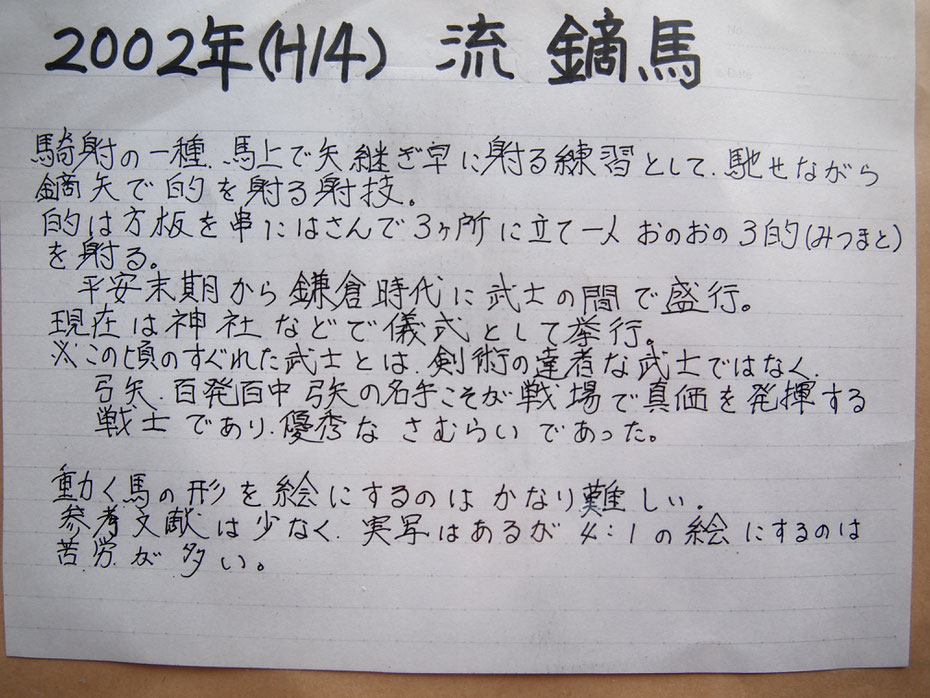 2002年(H14) 流鏑馬
騎射の一種、馬上で矢継ぎ早に射る練習として、馳せながら
鏑矢で的を射る射技。
的は方板を串にはさんで3ヶ所に立て一人おのおの3的(みつまと)
を射る。
平安末期から鎌倉時代に武士の間で盛行。
現在は神社などで儀式として挙行。
※この頃のすぐれた武士とは、剣術の達者な武士ではなく、
弓矢、百発百中弓矢の名手こそが戦場で真価を発揮する
戦士であり、優秀なさむらいであった。
動く馬の形を絵にするのはかなり難しい。
参考文献は少なく、実写はあるが4:1の絵にするのは
苦労が多い。
No.
Date